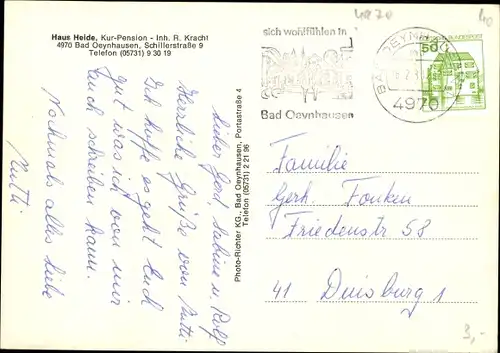 Haus Heide, Kur-Pension - Inh. R. Kracht
4970 Bad Oeynhausen, Schillerstraße 9
Telefon (05731) 9 30 19
Lieber Gerd, Sabine u. Rolf
Herzliche Grüße von Mutti
Ich hoffe es geht Euch
gut was ich von mir
auch schreiben kann.
Nochmals alles Liebe
Mutti
Photo-Richter KG., Bad Oeynhausen, Portastraße 4
Telefon (05731) 2 21 96
4970
40
sich wohlfühlen in
Bad Oeynhausen
BAD OEYNHAUSEN
4970
50
BUNDESPOST
Familie
Gerh. Fonken
Friedenstr 58
41 Duisburg 1
3,-